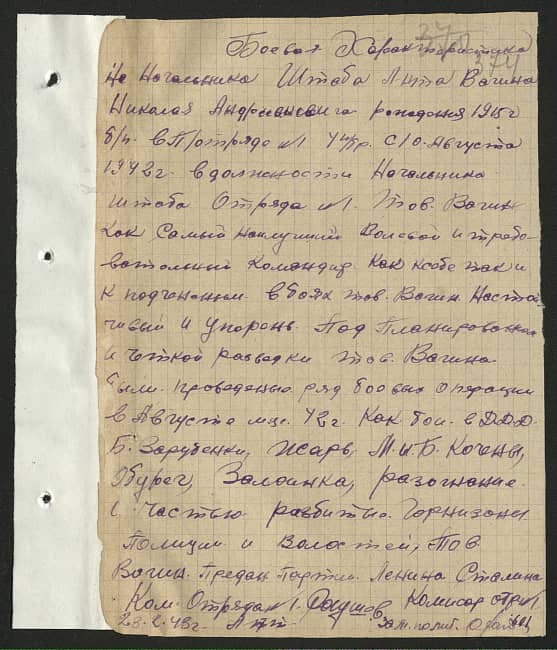 Боевая Характеристика
374
На Начальника Штаба Л-та Вагина
Николая Андриановича рождения 1915г
б/п. в П/отряде №1 С 10. Августа
1942г. в должности Начальника
Штаба Отряда №1. Тов. Вагин
Как Самый наилучший Волевой и требо
вательный Командир. Как к себе так и
к подчененным. в боях тов. Вагин. Настой
чивый и Упорень. Под Планированием
и чоткой разведки тов. Вагина
были. проведенно ряд боевых операций
в Августе м-це. 42г. Как бои. в Д.Д.Д.
Б. Зарубенки, Жарь, М. и Б. Кочены,
Обурег, Залоинка, разогнание.
С Частью разбиты. Горнизоны
Полиции и Волостей, Тов.
Вагин. Предан Партии. Ленина Сталина
Ком. Отряда №1. Комисар отр №1
23.2.43г. Л-т Зам. полит.